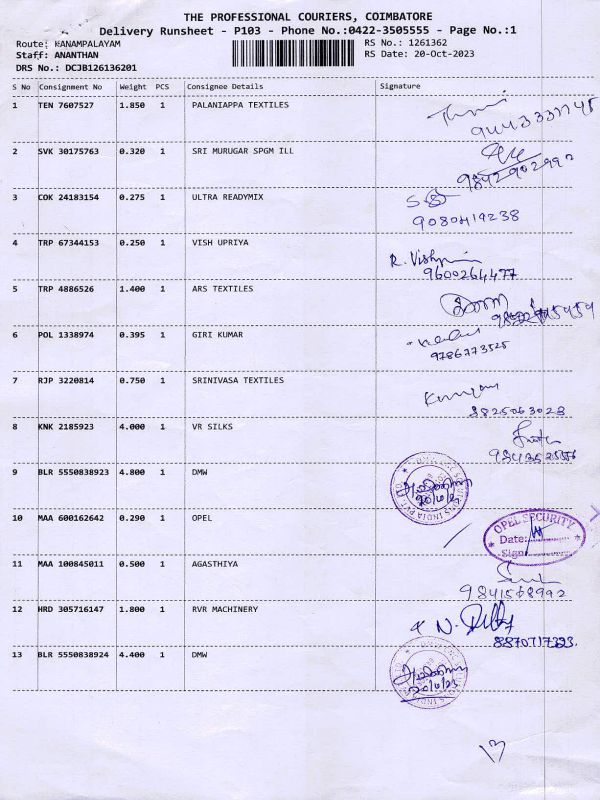 THE PROFESSIONAL COURIERS, COIMBATORE
Delivery Runsheet - P103 - Phone No.:0422-3505555 - Page No.:1
Route: KANAMPALAYAM RS No.: 1261362
Staff: ANANTHAN RS Date: 20-Oct-2023
DRS No.: DCJB126136201
S No Consignment No Weight PCS Consignee Details Signature
1 TEN 7607527 1.850 1 PALANIAPPA TEXTILES
2 SVK 30175763 0.320 1 SRI MURUGAR SPGM ILL
9842902992
3 COK 24183154 0.275 1 ULTRA READYMIX
9080419238
4 TRP 67344153 0.250 1 VISH UPRIYA R. Vishnu
9600264477
5 TRP 4886526 1.400 1 ARS TEXTILES
6 POL 1338974 0.395 1 GIRI KUMAR
9786773525
7 RJP 3220814 0.750 1 SRINIVASA TEXTILES
8825063028
8 KNK 2185923 4.000 1 VR SILKS
9 BLR 5550838923 4.800 1 DMW
10 MAA 600162642 0.290 1 OPEL OPEL SECURITY
Date:
Sign
11 MAA 100845011 0.500 1 AGASTHIYA
9841568992
12 HRD 305716147 1.800 1 RVR MACHINERY
13 BLR 5550838924 4.400 1 DMW
13